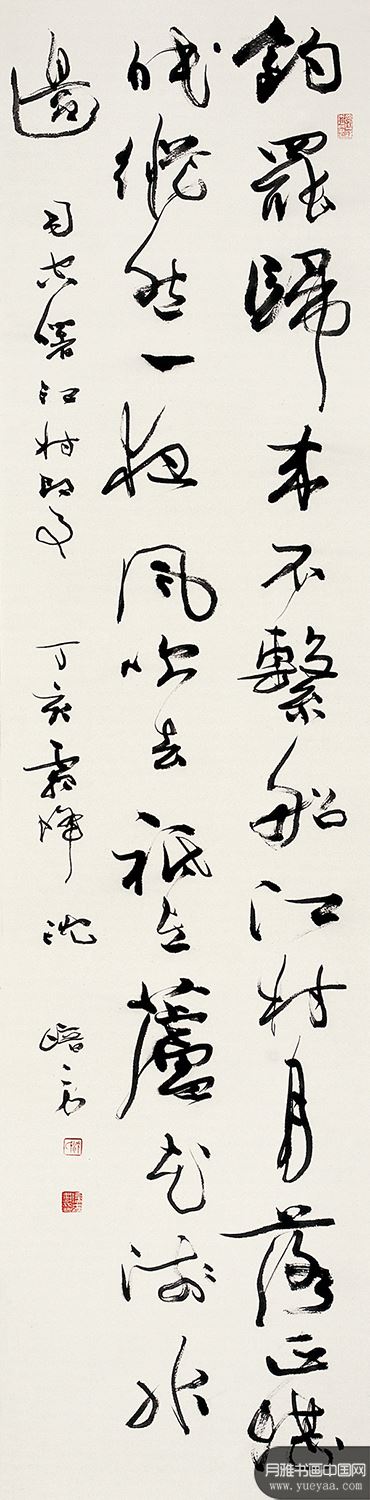 釣罷歸來不繫船江村月落正堪
眠縱然一夜風吹去祇在蘆花淺水
邊 司空曙江村即事 丁亥霜降 沈培方
月雅书画中国网
www.yueyaa.com